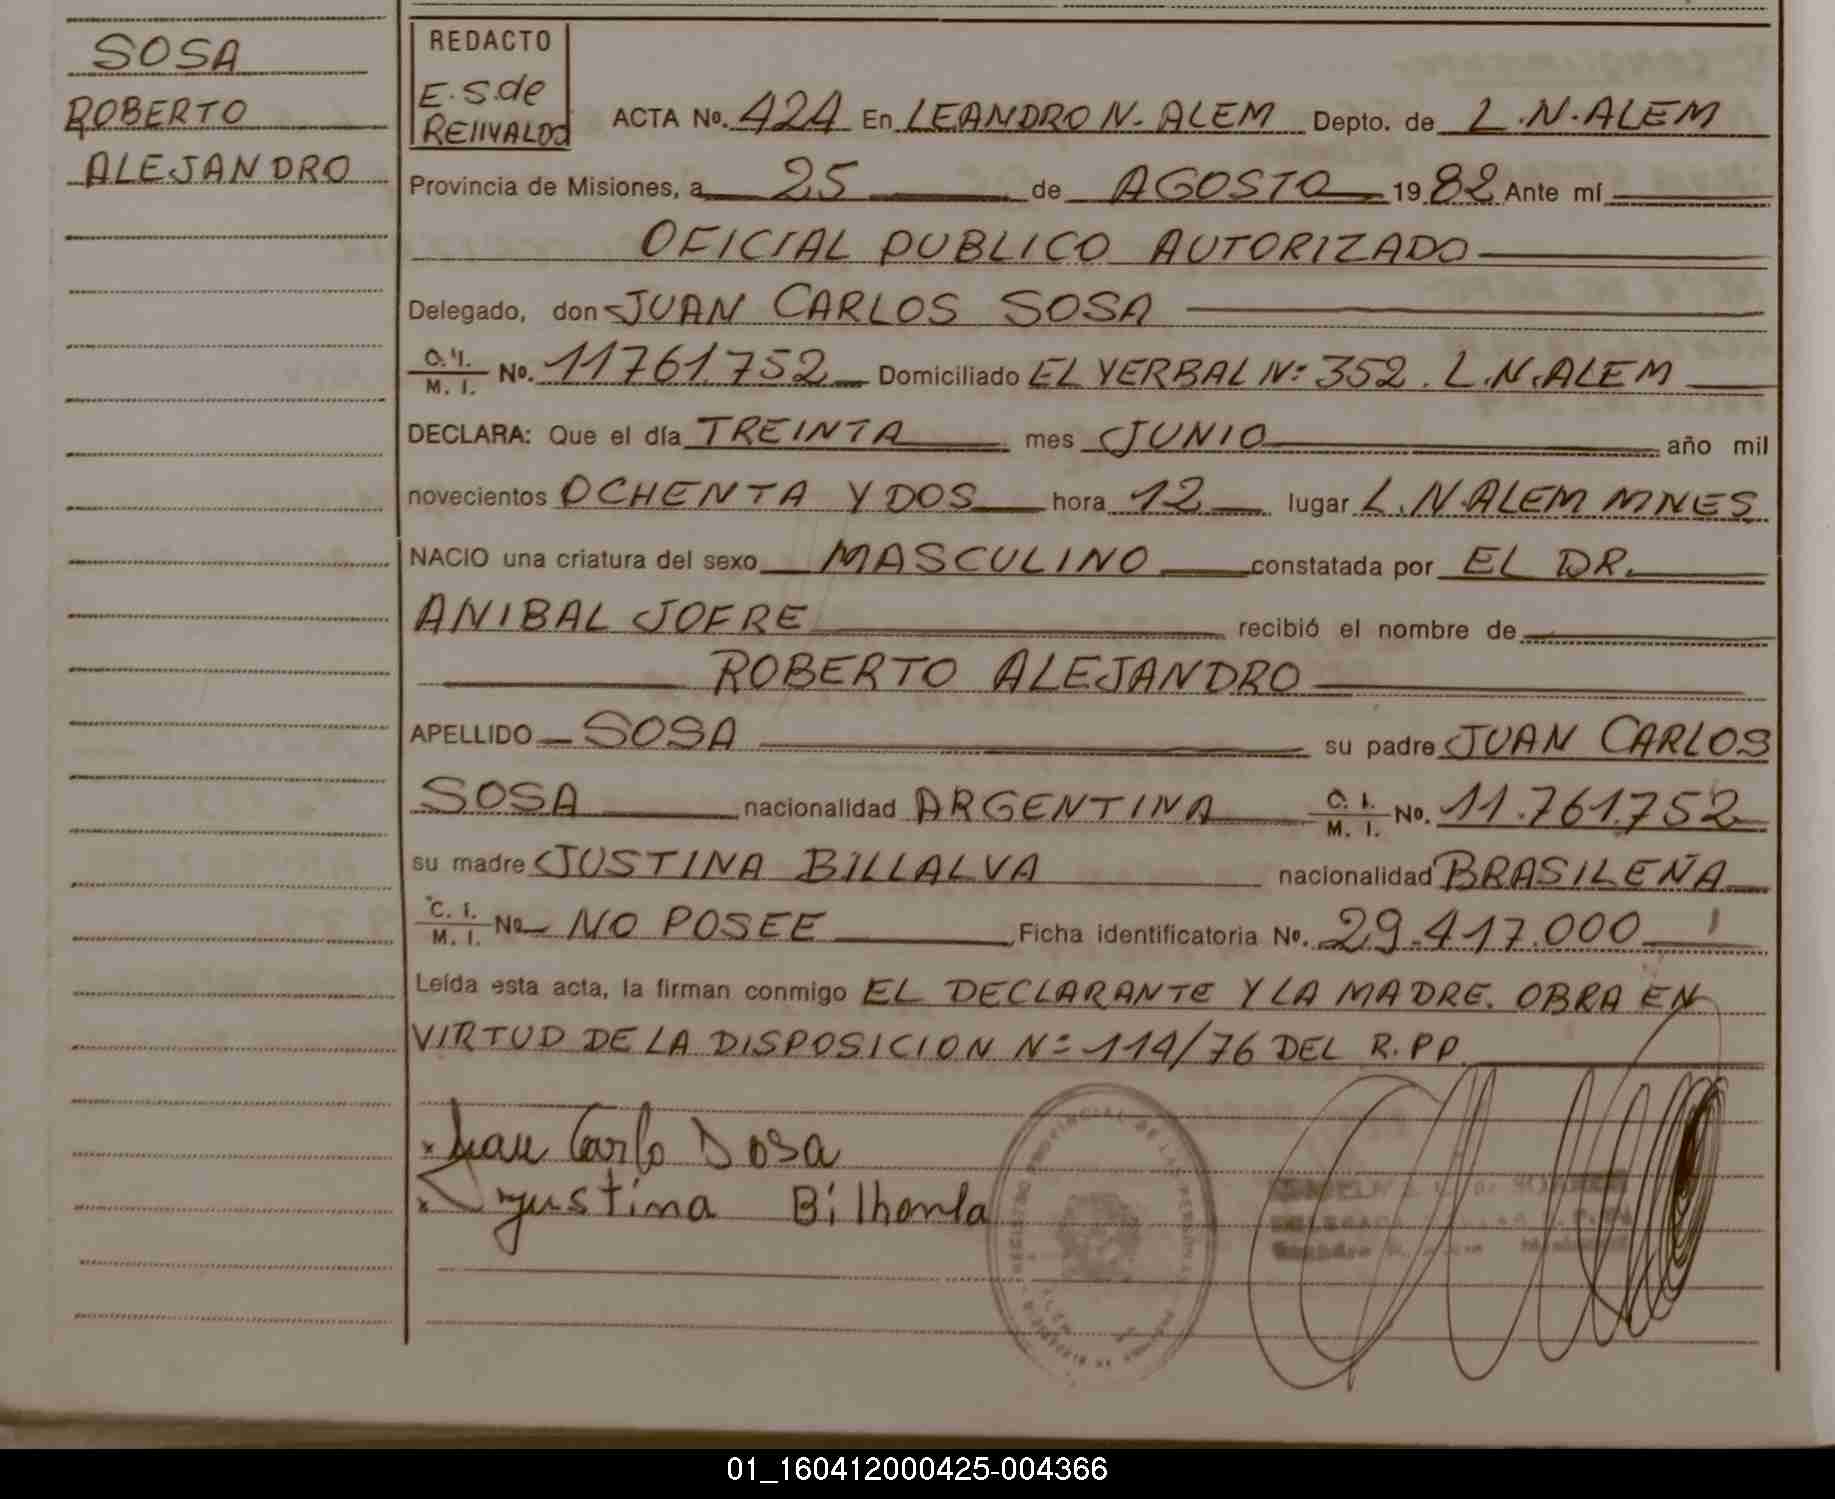 SOSA
ROBERTO
ALEJANDRO
REDACTO
E.S.de
REIIVALDO
ACTA No. 424 En LEANDRO N. ALEM Depto. de L.N.ALEM
Provincia de Misiones, a 25 de AGOSTO 1982 Ante mí
OFICIAL PUBLICO AUTORIZADO
Delegado, don JUAN CARLOS SOSA
C.I. M. I. No. 11761.752 Domiciliado EL YERBAL Nº 352. L.N.ALEM
DECLARA: Que el día TREINTA mes JUNIO año mil
novecientos OCHENTA Y DOS hora 12 lugar L.N.ALEM MNES
NACIO una criatura del sexo MASCULINO constatada por EL DR.
ANIBAL JOFRE recibió el nombre de
ROBERTO ALEJANDRO
APELLIDO SOSA su padre JUAN CARLOS
SOSA nacionalidad ARGENTINA C. I. M. I. No. 11.761.752
su madre JUSTINA BILLALVA nacionalidad BRASILEÑA
C. I. M. I. No NO POSEE Ficha identificatoria No. 29.417.000
Leída esta acta, la firman conmigo EL DECLARANTE Y LA MADRE. OBRA EN
VIRTUD DE LA DISPOSICION Nº 114/76 DEL R.PP.
Juan Carlo Sosa
Jyustina Bilhanla
01_160412000425-004366